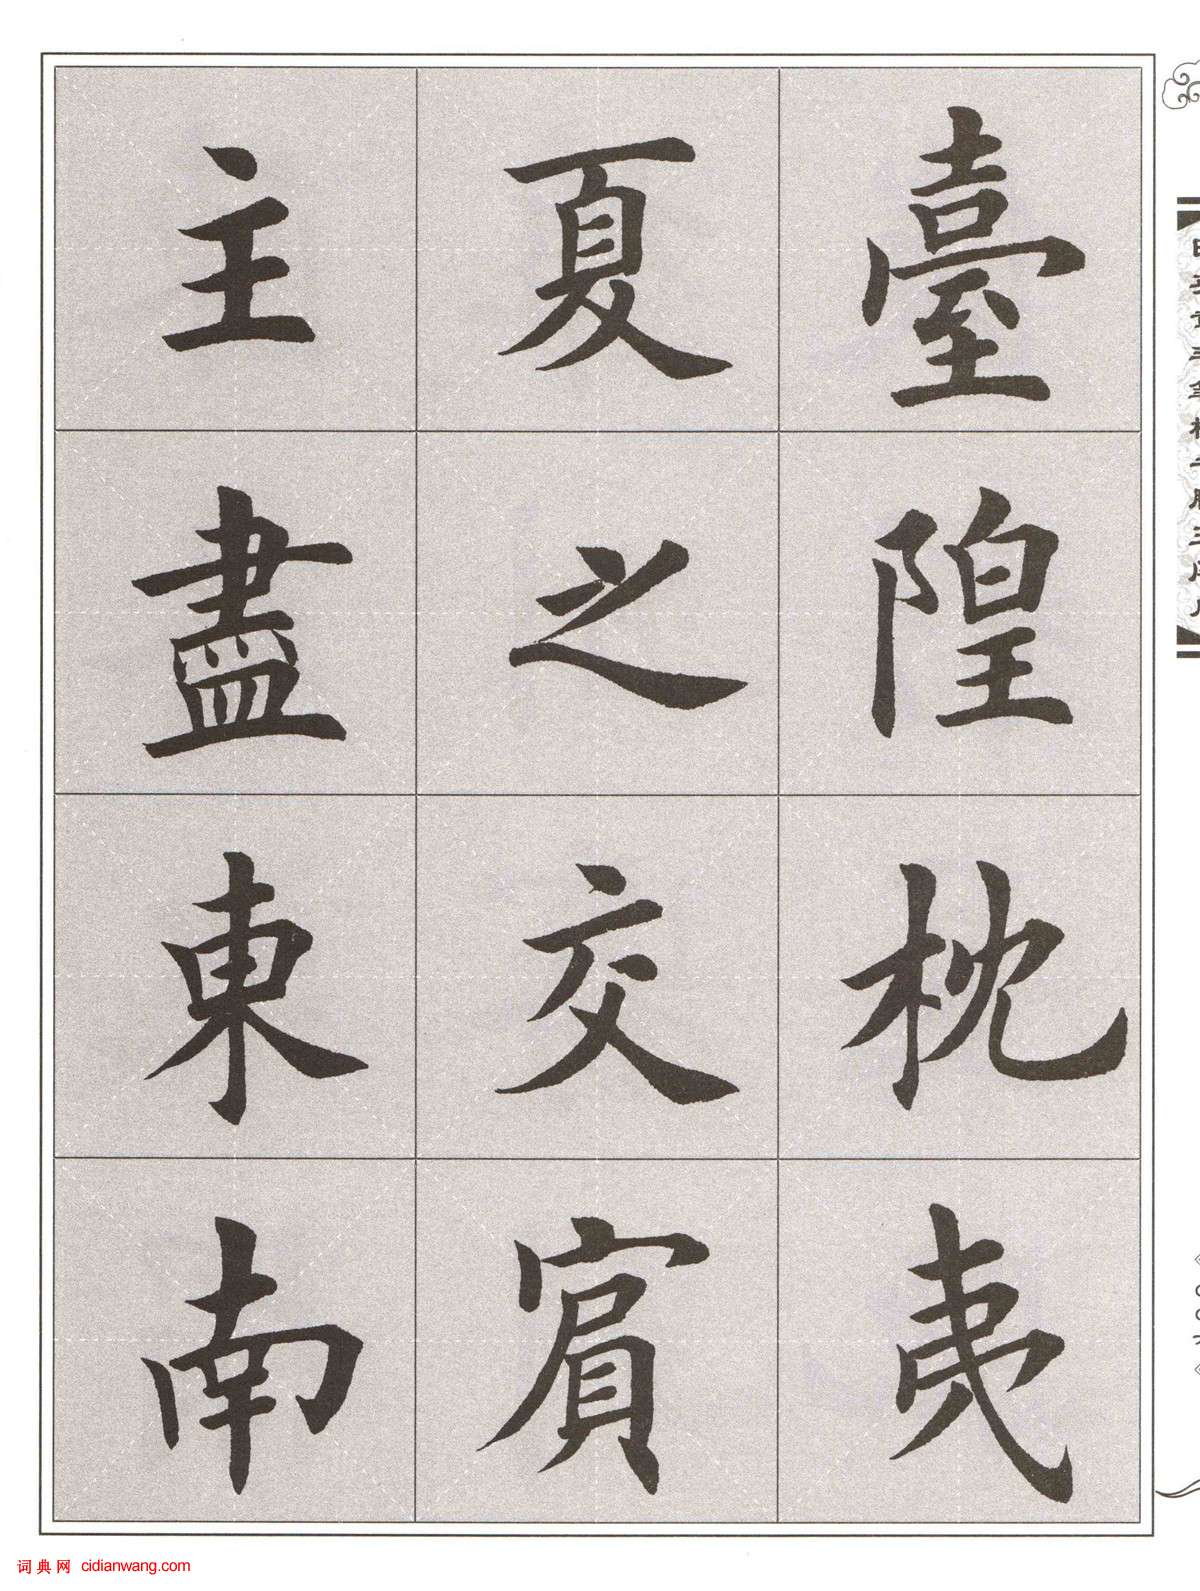 臺隍枕夷
夏之交賔
主盡東南
词典网 cidianwang.com